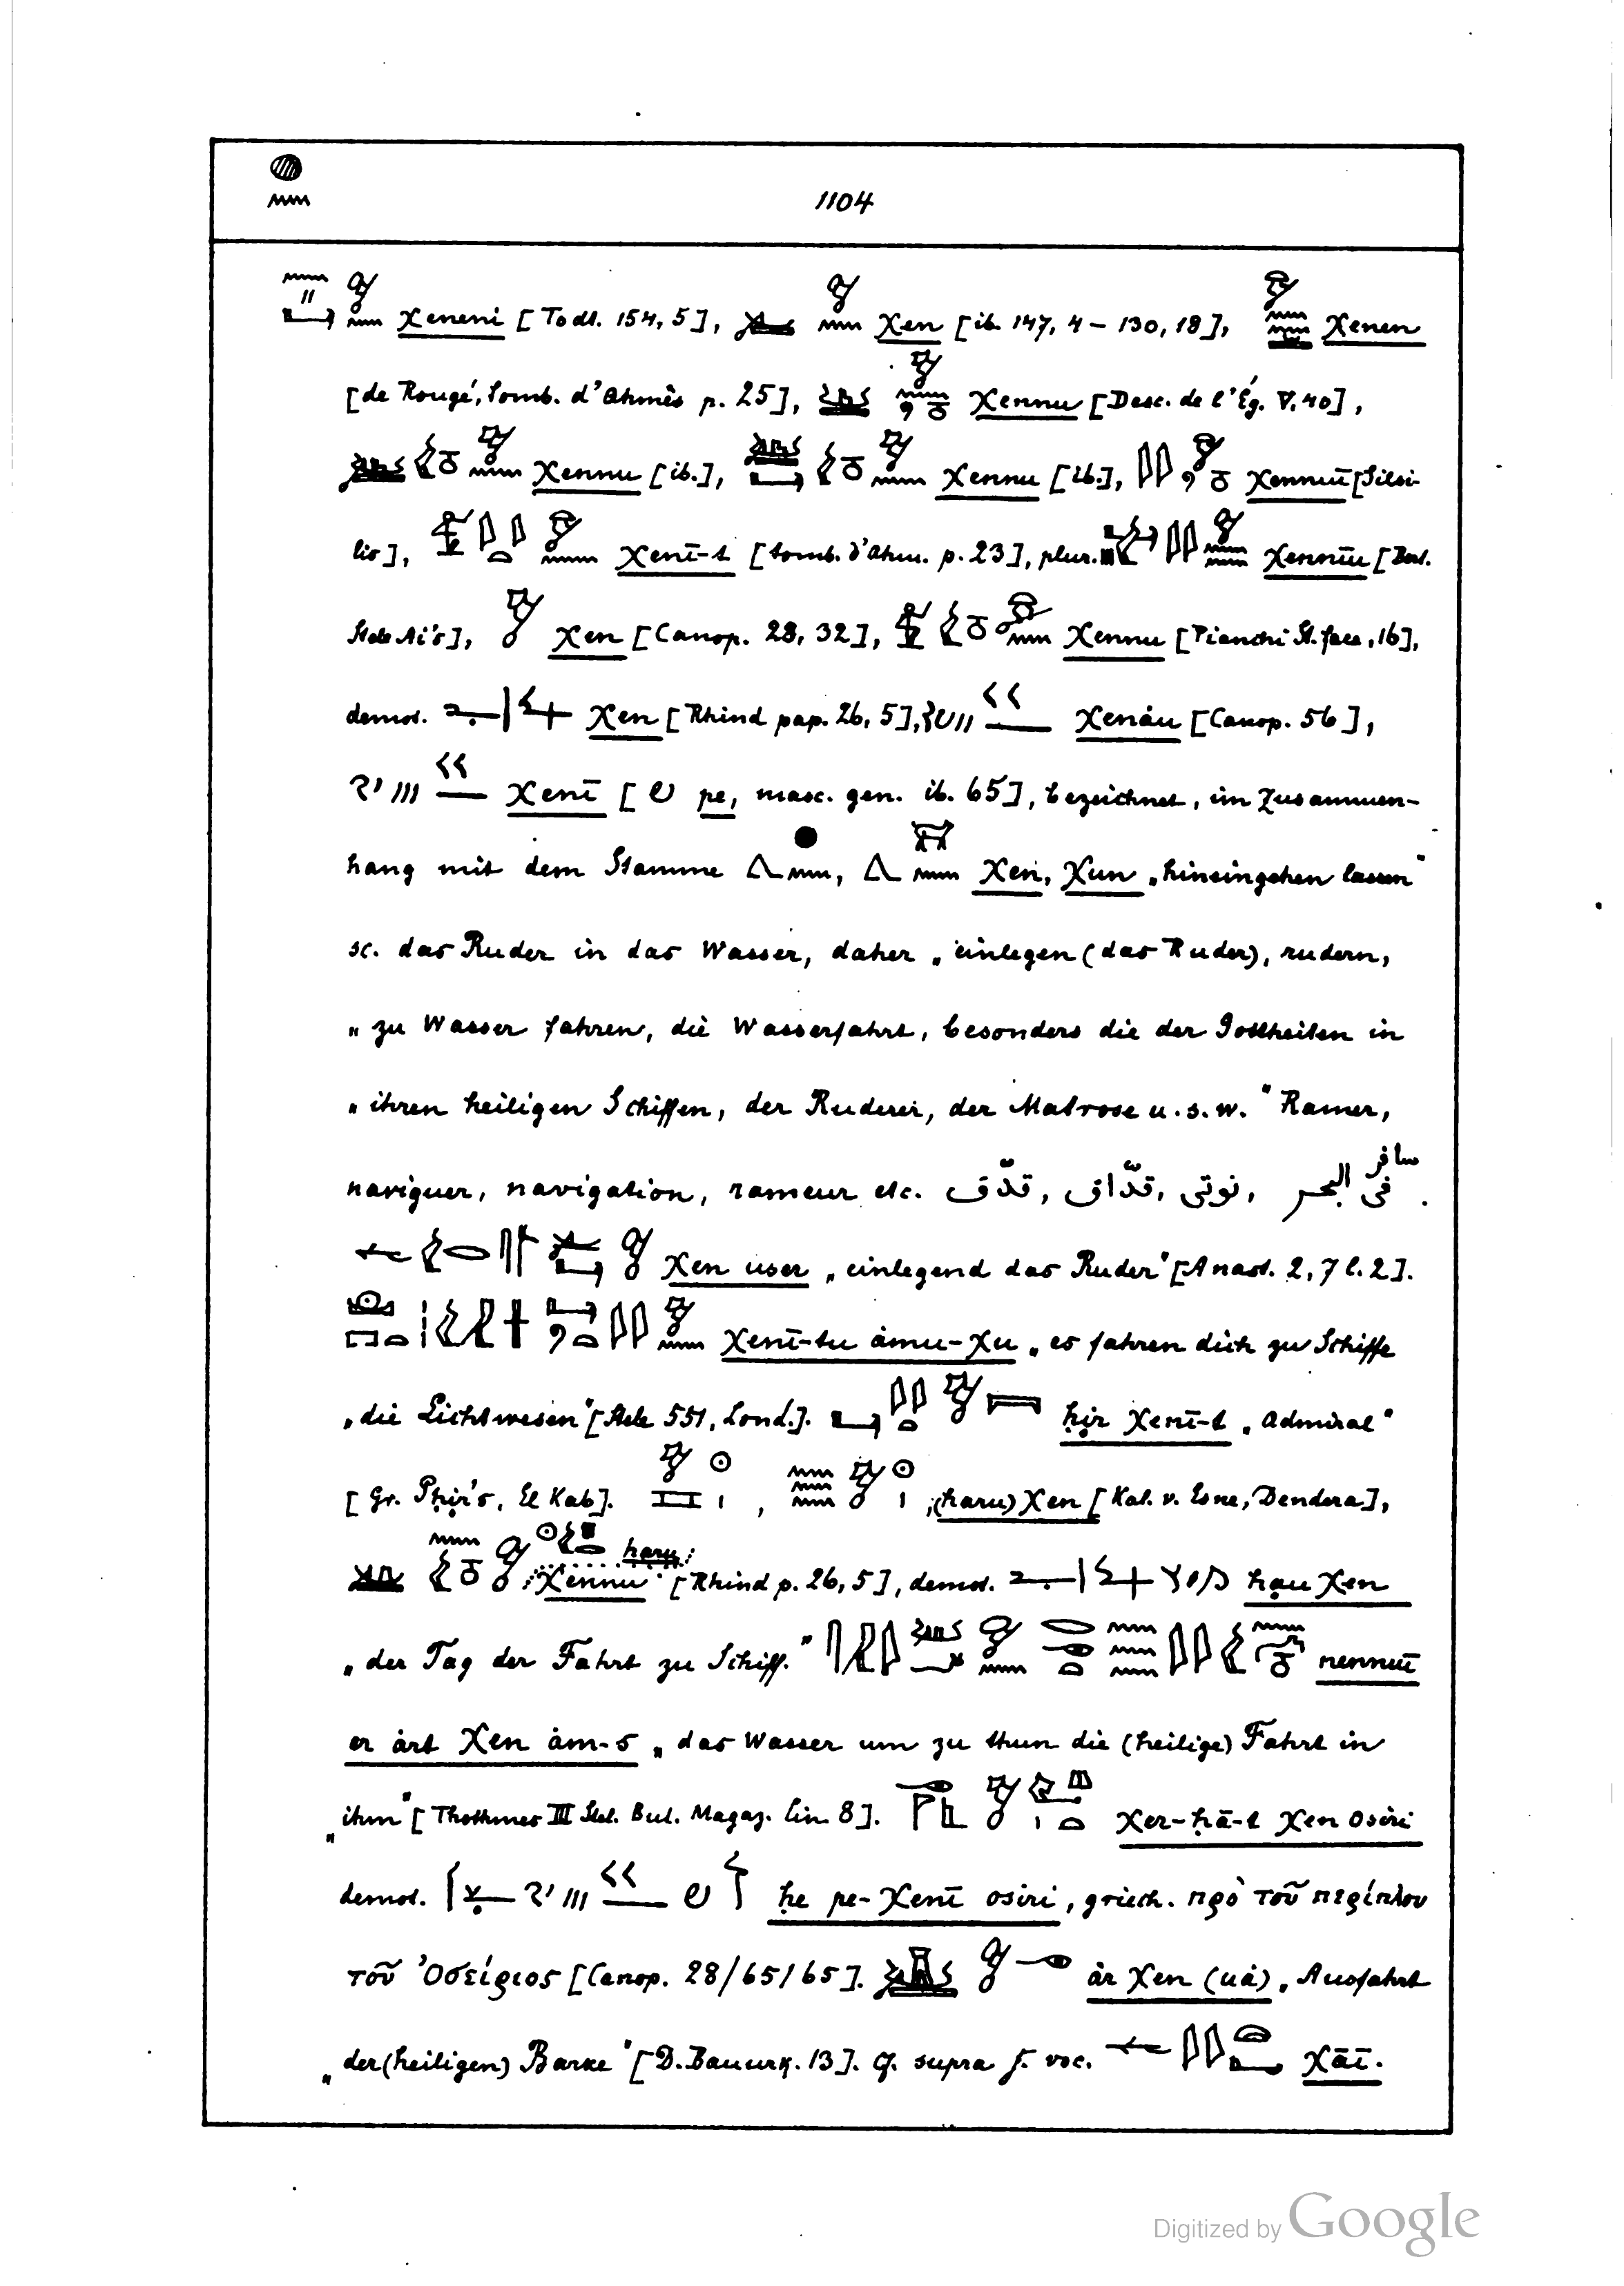 1104
χeneni [Todt. 154, 5], χen [ib. 147, 4 – 130, 18], χenen
[de Rougé, tomb. d'Ahmès p. 25], χennu [Desc. de l'Ég. V. 40],
χennu [ib.], χennu [ib.], χennuī [Silsi-
lis], χenī-t [tomb. d'Ahm. p. 23], plur. χennīu [Berl.
Stele Ai's], χen [Canop. 28, 32], χennu [Pianchi St. face, 16],
demot. χen [Rhind pap. 26, 5], χenȧu [Canop. 56],
χenī [pe, masc. gen. ib. 65], bezeichnet, im Zusammen-
hang mit dem Stamme χen, χun „hineingehen lassen"
sc. das Ruder in das Wasser, daher „einlegen (das Ruder), rudern,
„zu Wasser fahren, die Wasserfahrt, besonders die der Gottheiten in
„ihren heiligen Schiffen, der Ruderer, der Matrose u. s. w." Ramer,
naviguer, navigation, rameur etc. قدّف, قدّاف, نوتى, سافر فى البحر.
χen user „einlegend das Ruder" [Anast. 2, 7 l. 2].
χenī-tu ȧmu-χu „es fahren dich zu Schiffe
„die Lichtwesen" [Stele 551, Lond.]. ḥir χenī-t „Admiral"
[Gr. Pḥir's, El Kab]. , (haru) χen [Kal. v. Esne, Dendera],
haru χennu [Rhind p. 26, 5], demot. hau χen
„der Tag der Fahrt zu Schiff." nennuī
er ȧrt χen ȧm-s „das Wasser um zu thun die (heilige) Fahrt in
„ihm" [Thothmes III Stel. Bul. Magaz. lin. 8]. χer-ḥā-t χen Osiri
demot. ḥe pe-χenī osiri, griech. πρὸ τοῦ περίπλου
τοῦ Ὀσείριος [Canop. 28/65/65]. ȧr χen (uȧ) „Ausfahrt
„der (heiligen) Barke" [D. Bauurk. 13]. cf. supra s. voc. χāī.
Digitized by Google